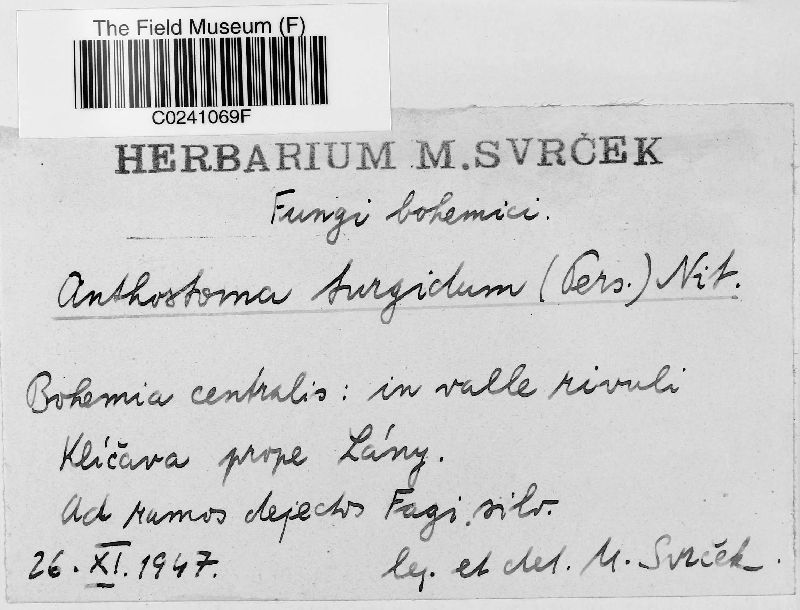 The Field Museum (F)
C0241069F
HERBARIUM M. SVRČEK
Fungi bohemici.
Anthostoma turgidum (Pers.) Nit.
Bohemia centralis: in valle rivuli
Klíčava prope Lány.
Ad ramos dejectos Fagi silv.
26. XI. 1947. leg. et det. M. Svrček.